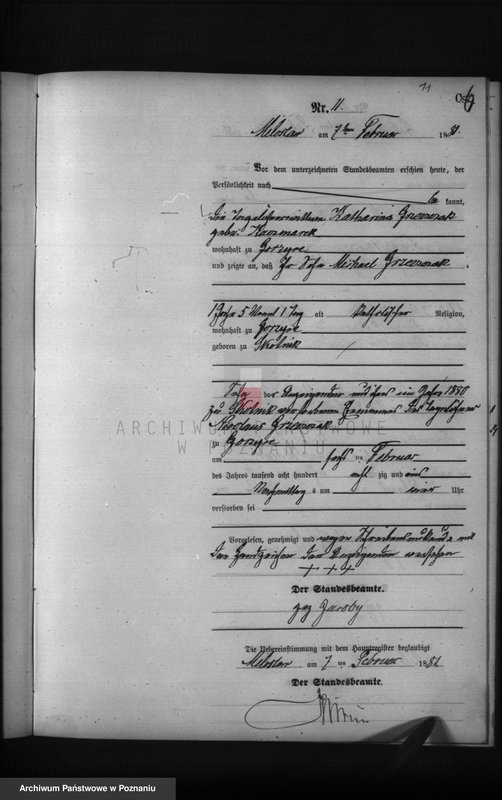 11
Nr. 11.
Miloslaw am 7 ten Februar 1881.
Vor dem unterzeichneten Standesbeamten erschien heute, der
Persönlichkeit nach
be kannt,
die Tagelöhnerwittwe Katharina Grzewczak
geb. Kaczmarek
wohnhaft zu Gorzyce
und zeigte an, daß ihr Sohn Michael Grzewczak
1 Jahr 5 Monat 1 Tag alt katholischer Religion,
wohnhaft zu Gorzyce
geboren zu Skotnik
Sohn der Anzeigenden und ihres im Jahre 1880
zu Skotnik verstorbenen Ehemannes des Tagelöhners
Nicolaus Grzewczak
ARCHIWUM PAŃSTWOWE
W POZNANIU
zu Gorzyce
am sechs ten Februar
des Jahres tausend acht hundert acht zig und eins
Nachmittag s um Uhr
verstorben sei
Vorgelesen, genehmigt und wegen Schreibensunkunde mit
den Handzeichen der Anzeigenden versehen
+ + +
Der Standesbeamte.
gez
Die Uebereinstimmung mit dem Hauptregister beglaubigt
Miloslaw am 7 ten Februar 1881
Der Standesbeamte.
Archiwum Państwowe w Poznaniu